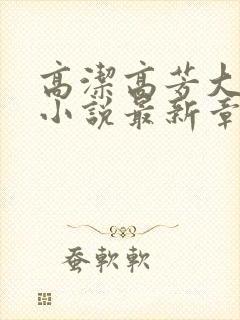 高潔高芳大
小說最新章
蚕軟軟